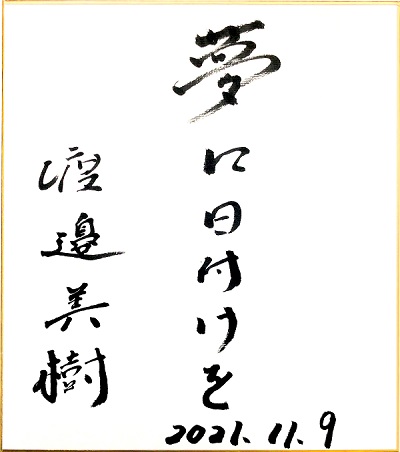 夢に日付けを
渡邉美樹
2021.11.9